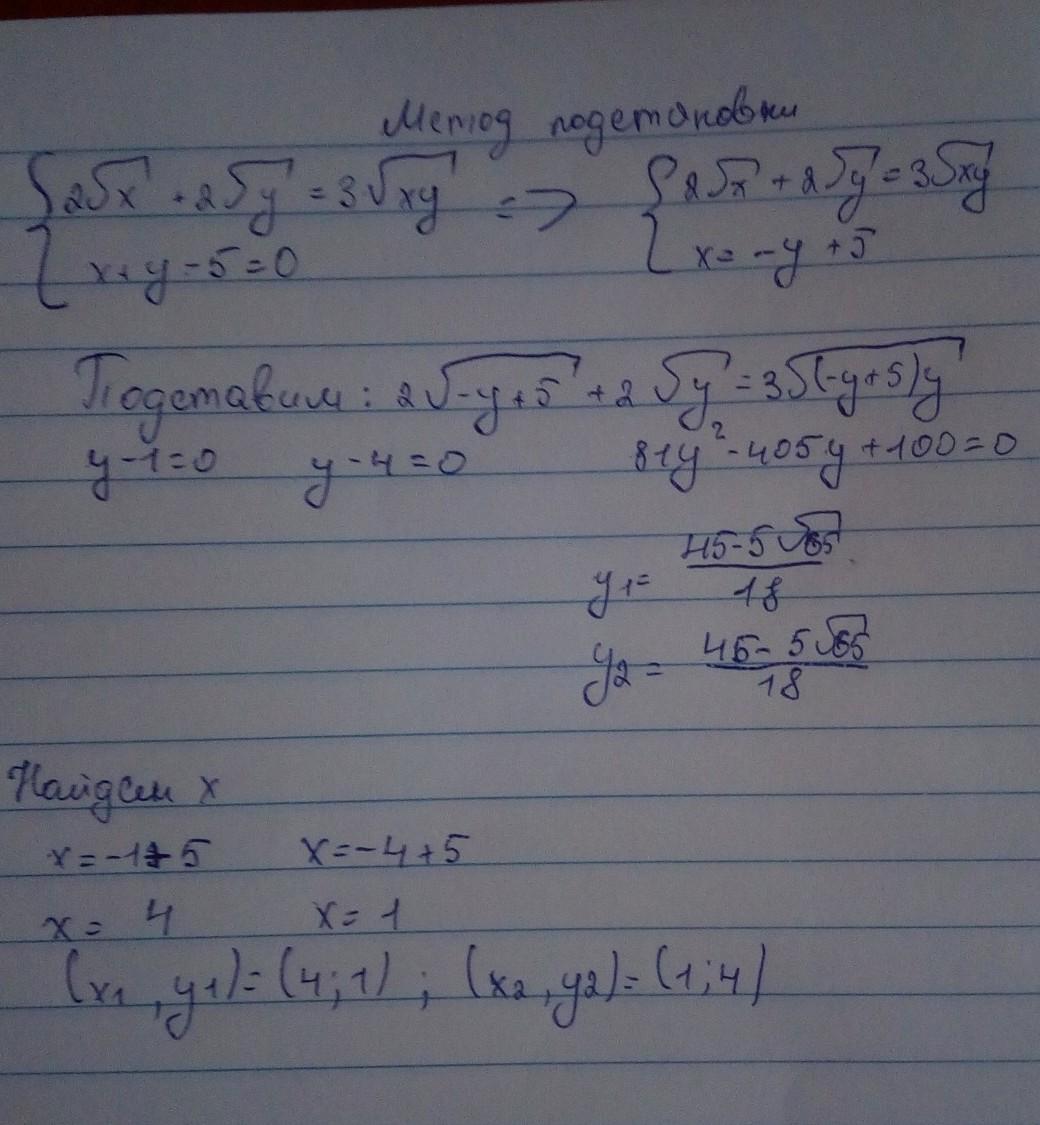 Метод подстановки
{2√x + 2√y = 3√xy => {2√x + 2√y = 3√xy
x+y-5=0 x=-y+5
Подставим: 2√-y+5 + 2√y = 3√(-y+5)y
y-1=0 y-4=0 81y²-405y+100=0
y1= 45-5√65/18
y2= 45-5√65/18
Найдем x
x=-1+5 x=-4+5
x= 4 x=1
(x1,y1)=(4;1); (x2,y2)=(1;4)